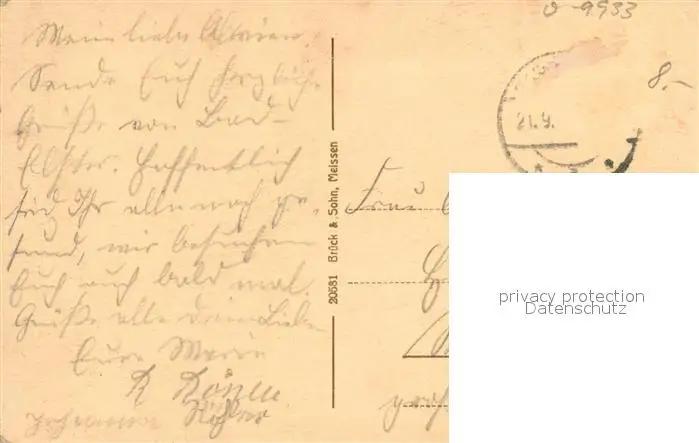 o-9933
8.-
21.9.
Mein lieber
Sende Euch herzliche
Grüße von Bad-
Elster. Hoffentlich
seid Ihr alle noch ge-
sund, wir besuchen
Euch auch bald mal.
Grüße alle deine Lieben
Eure Marie
R
Brück & Sohn, Meissen
20581
Frau
privacy protection
Datenschutz